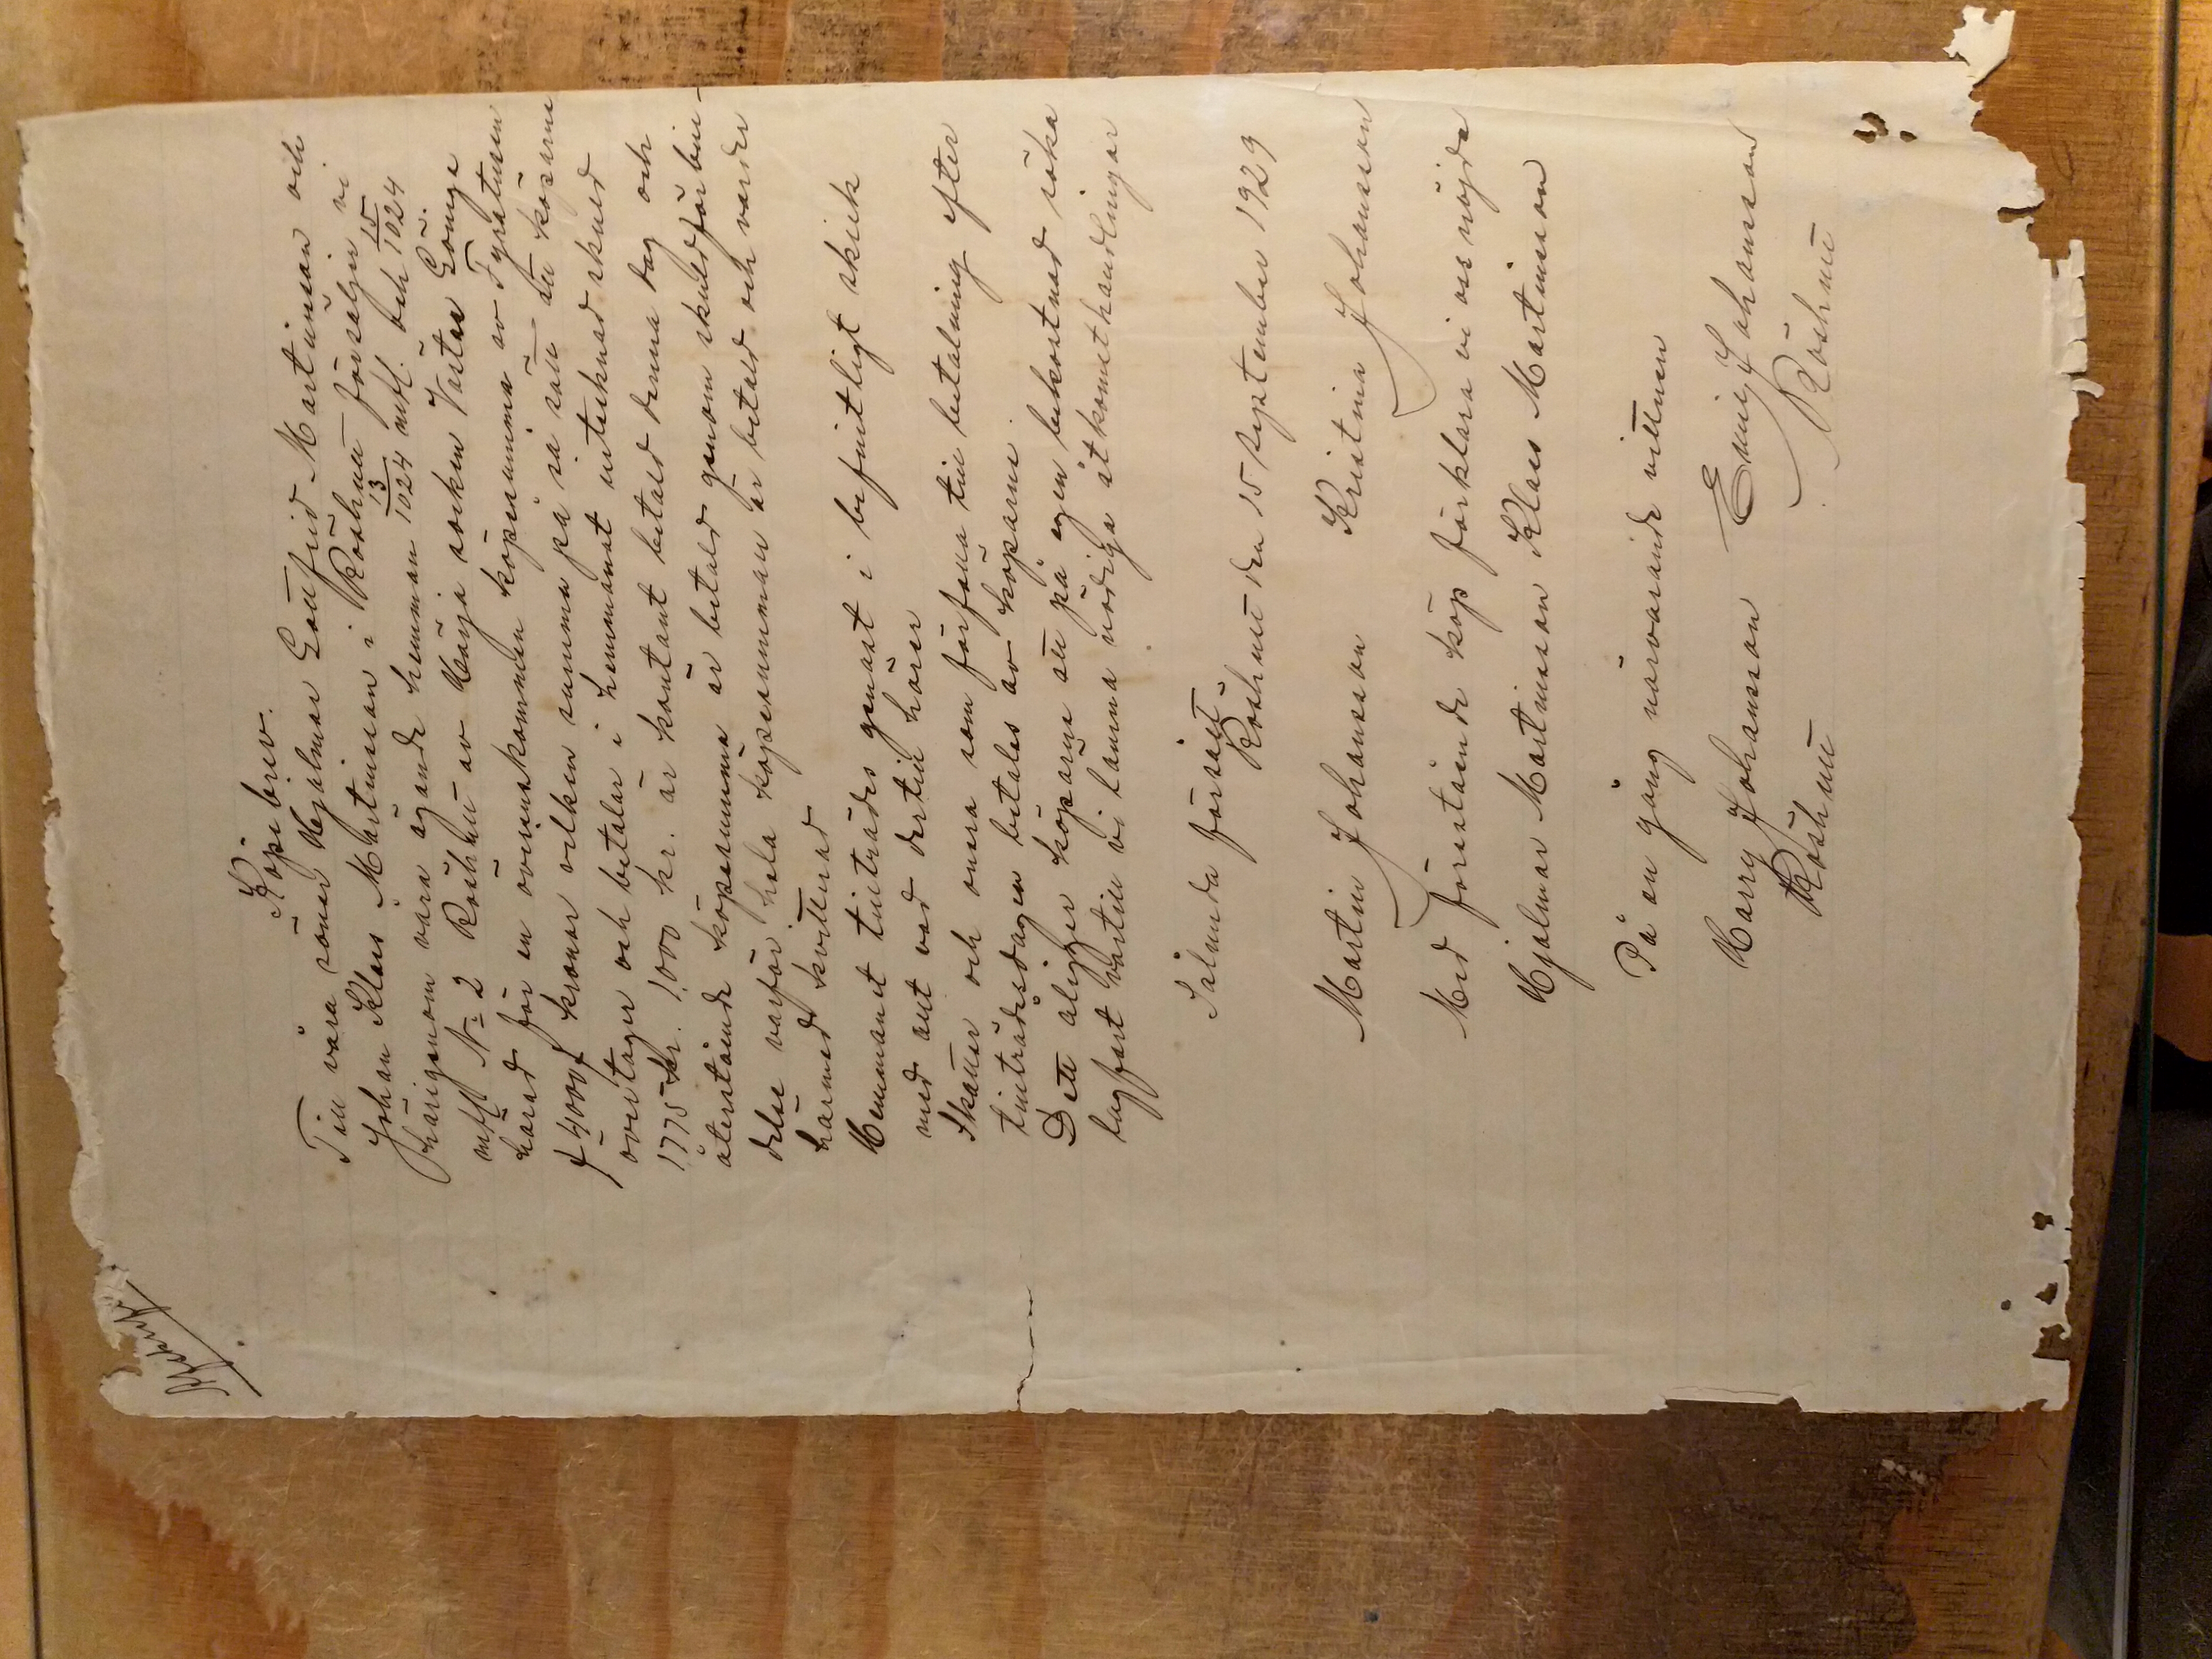 Köpebrev.
Till våra söner Hjalmar Gottfrid Martinsson och
Johan Klas Martinsson i Röshult försäljer vi
härigenom våra ägande hemman 13/1024 mtl. och 15/1024
mtl N=2 Röshult av Härja socken Vartofta
härad för en överenskommen köpesumma av Fyratusen
4000 kronor vilken summa på så sätt att köparne
övertager och betalar i hemmanet intecknad skuld
1775 kr. 1,000 kr. är kontant betald denna dag och
återstående köpesumma är betald genom skuldförbin-
delse varför hela köpesumman är betald och varder
härmed kvitterad
Hemmanet tillträdes genast i befintligt skick
med allt vad dertill hörer
Skatter och onera som förfalla till betalning efter
tillträdesdagen betales av köparne.
Dett åligger köparne att på egen bekostnad söka
lagfart vartill vi lämna nödiga åtkomsthandlingar
Sålunda försålt.
Röshult den 15 September 1929
Martin Johansson Kristina Johansson
Med förestående köp förklara vi oss nöjda
Hjalmar Martinsson Klas Martinsson
På en gång närvarande vittnen
Harry Johansson Emil Johansson
Röshult Röshult